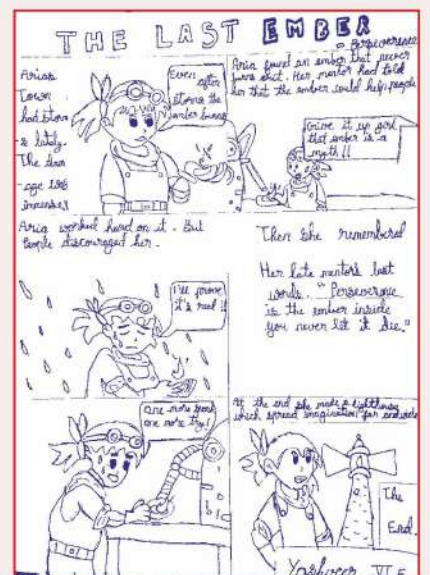 THE LAST EMBER
- Perseverence
Arias
Town
had storm
s lately.
The dam
age was
immense!!
Even after
storms the
ember burns
Aria found an ember that never
burns out. Her mentor had told
her that the ember could help people
Give it up girl
that ember is a
myth!!
Aria worked hard on it. But
People discouraged her.
I'll prove
it's real!!
Then she remembered
Her late mentor's last
words. "Perseverance
is the ember inside
you never let it die."
one more spark
one more try!
At the end she made a lighthouse
which spread imagination far and wide
The
End.
VI E